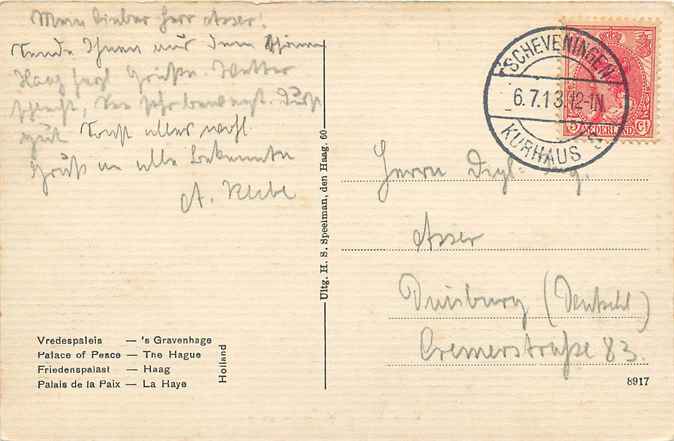 Mein lieber Herr Asser!
Sende Ihnen aus dem schönen
Haag herzl. Grüße. Wetter
schlecht, See sehr bewegt.
gut Sonst alles wohl.
Gruß an alle Bekannte
A.
SCHEVENINGEN
6.7.13.12-1N
KURHAUS
5 Ct
NEDERLAND
Herrn Dipl. Ing.
Asser
Duisburg (Deutschl)
Cremerstraße 83.
Uitg. H. S. Speelman, den Haag. 60
Vredespaleis — 's Gravenhage
Palace of Peace — The Hague
Friedenspalast — Haag
Palais de la Paix — La Haye
Holland
8917